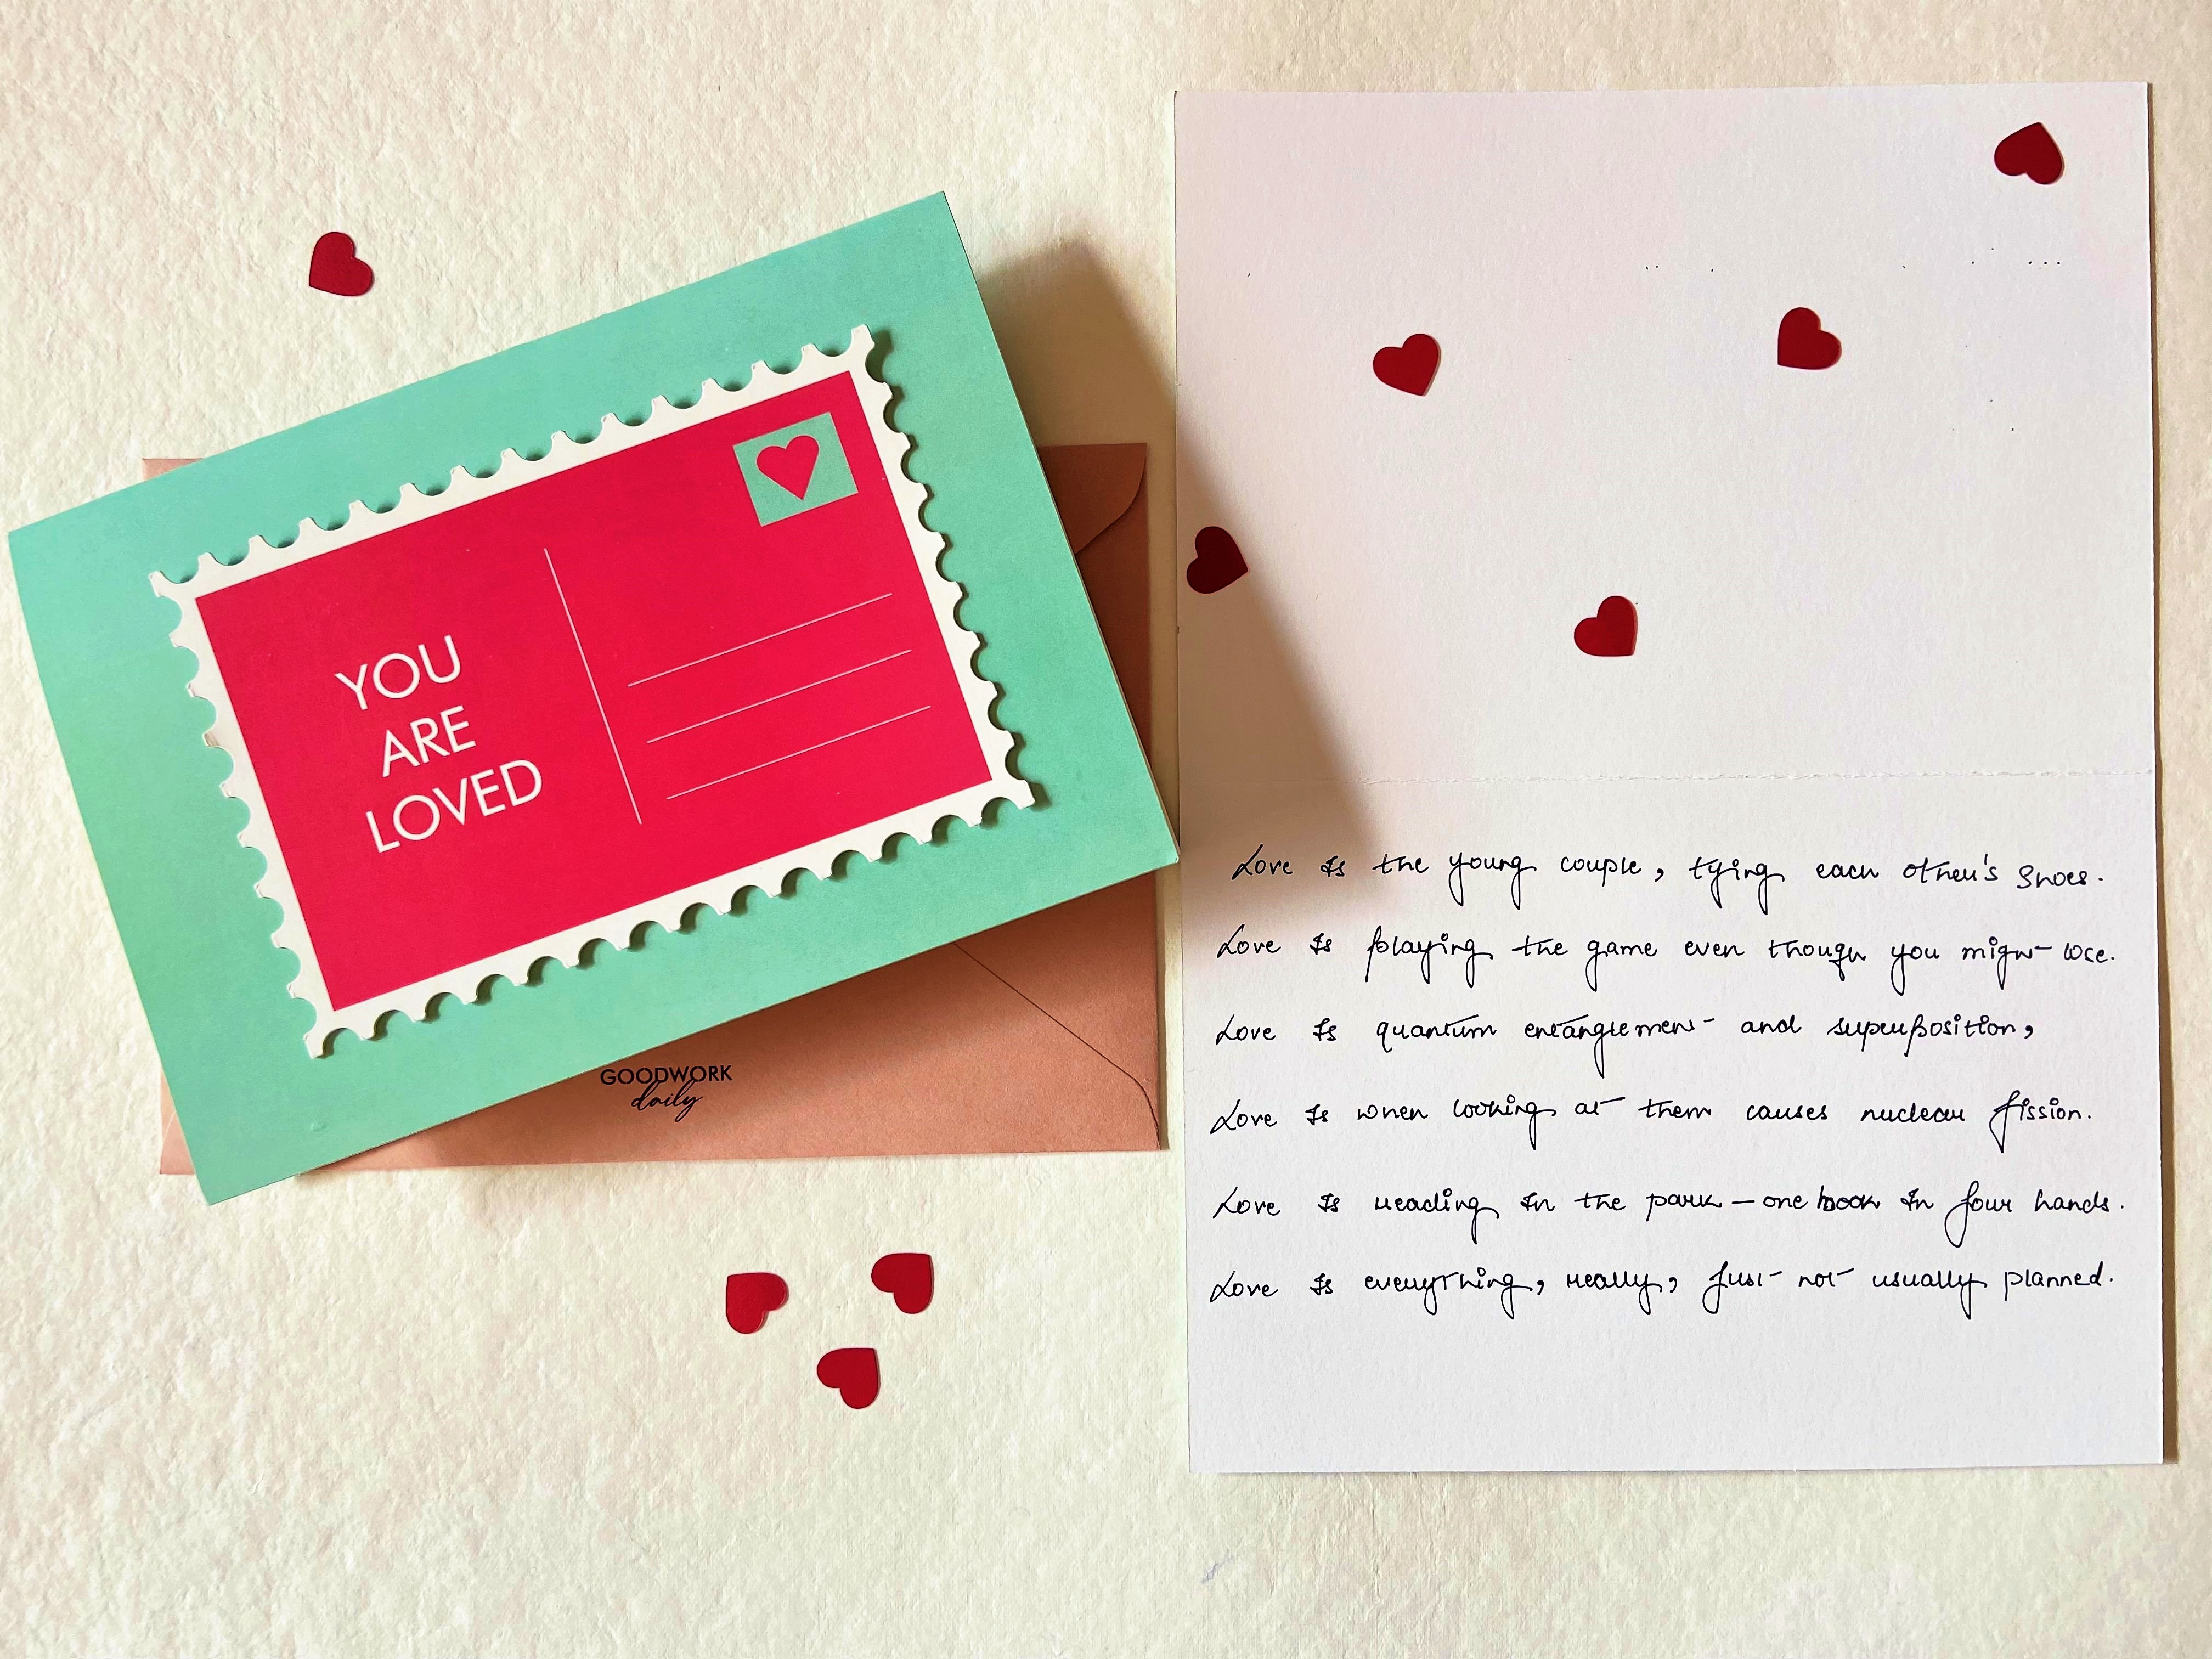 YOU
ARE
LOVED
GOODWORK
daily
Love Is the young couple, tying each other's shoes.
Love Is playing the game even though you might lose.
Love Is quantum entanglement and superposition,
Love Is when looking at them causes nuclear fission.
Love Is reading In the park – one book In four hands.
Love Is everything, really, just not usually planned.